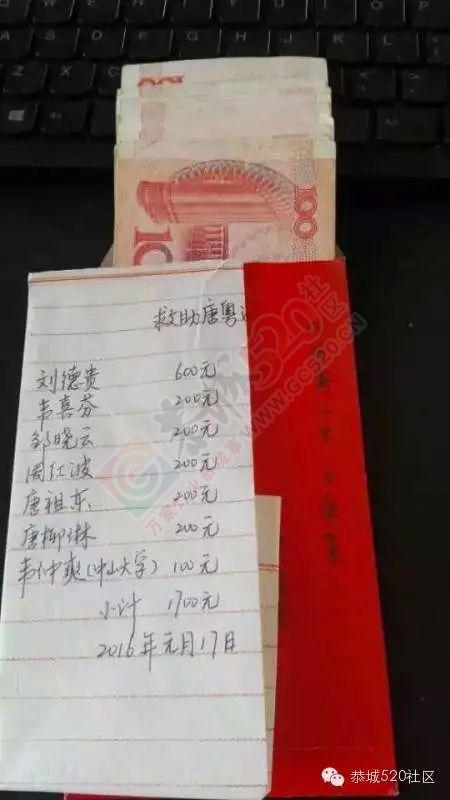 100
10
救助唐粤
刘德贵 600元
韦喜芬 200元
邹晓云 200元
周红波 200元
唐祖东 200元
唐柳琳 200元
韦仲爽(中山大学) 100元
小计 1700元
2016年元月17日
恭城520社区
WWW.GC520.CN
万家灯火 故事
恭城520社区